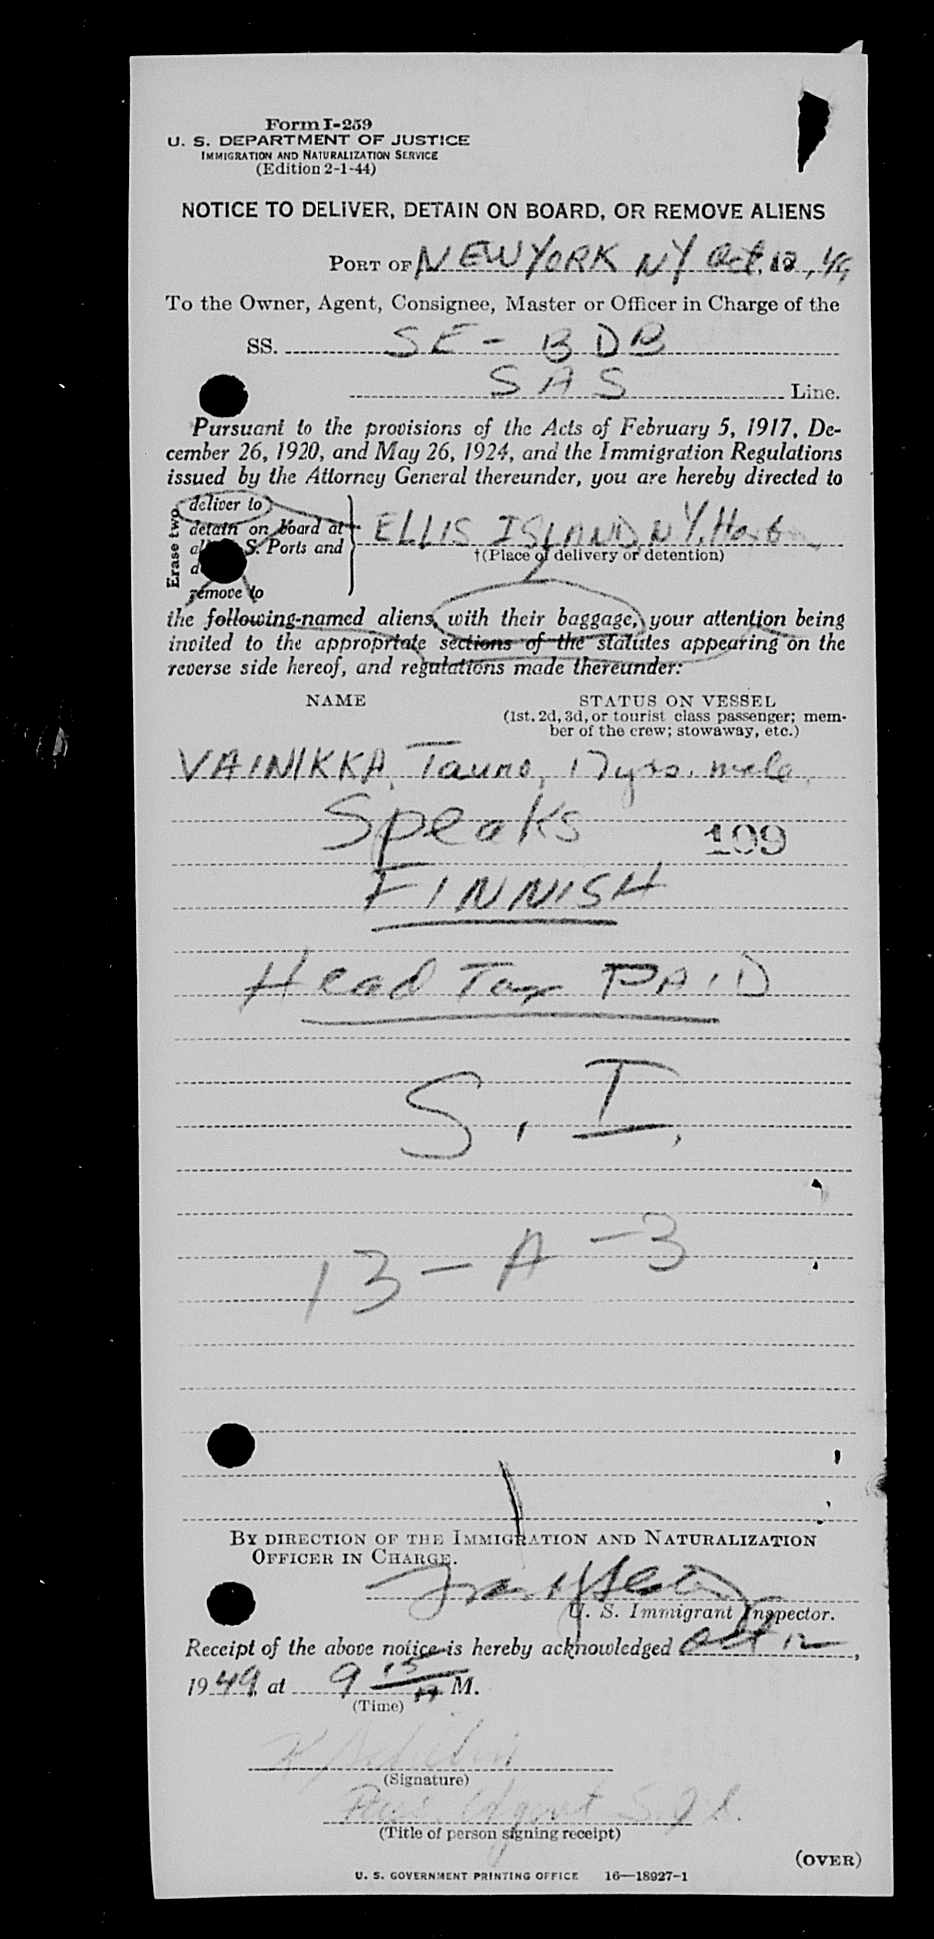 Form I-259
U. S. DEPARTMENT OF JUSTICE
IMMIGRATION AND NATURALIZATION SERVICE
(Edition 2-1-44)
NOTICE TO DELIVER, DETAIN ON BOARD, OR REMOVE ALIENS
PORT OF NEW YORK NY Oct. 12, 49
To the Owner, Agent, Consignee, Master or Officer in Charge of the
SS. SE - BDB
SAS Line.
Pursuant to the provisions of the Acts of February 5, 1917, De-
cember 26, 1920, and May 26, 1924, and the Immigration Regulations
issued by the Attorney General thereunder, you are hereby directed to
Erase two
deliver to
detain on board at
S. Ports and
remove to
ELLIS ISLAND, NY.
†(Place of delivery or detention)
the following-named aliens, with their baggage, your attention being
invited to the appropriate sections of the statutes appearing on the
reverse side hereof, and regulations made thereunder:
NAME STATUS ON VESSEL
(1st, 2d, 3d, or tourist class passenger; mem-
ber of the crew; stowaway, etc.)
VAINIKKA, Tauno, 17 yrs. male
Speaks 109
FINNISH
Head Tax PAID
S. I.
13-A-3
BY DIRECTION OF THE IMMIGRATION AND NATURALIZATION
OFFICER IN CHARGE.
U. S. Immigrant Inspector.
Receipt of the above notice is hereby acknowledged Oct 12,
1949, at 9 15 M.
(Time)
(Signature)
(Title of person signing receipt)
(OVER)
U. S. GOVERNMENT PRINTING OFFICE 16—18927-1